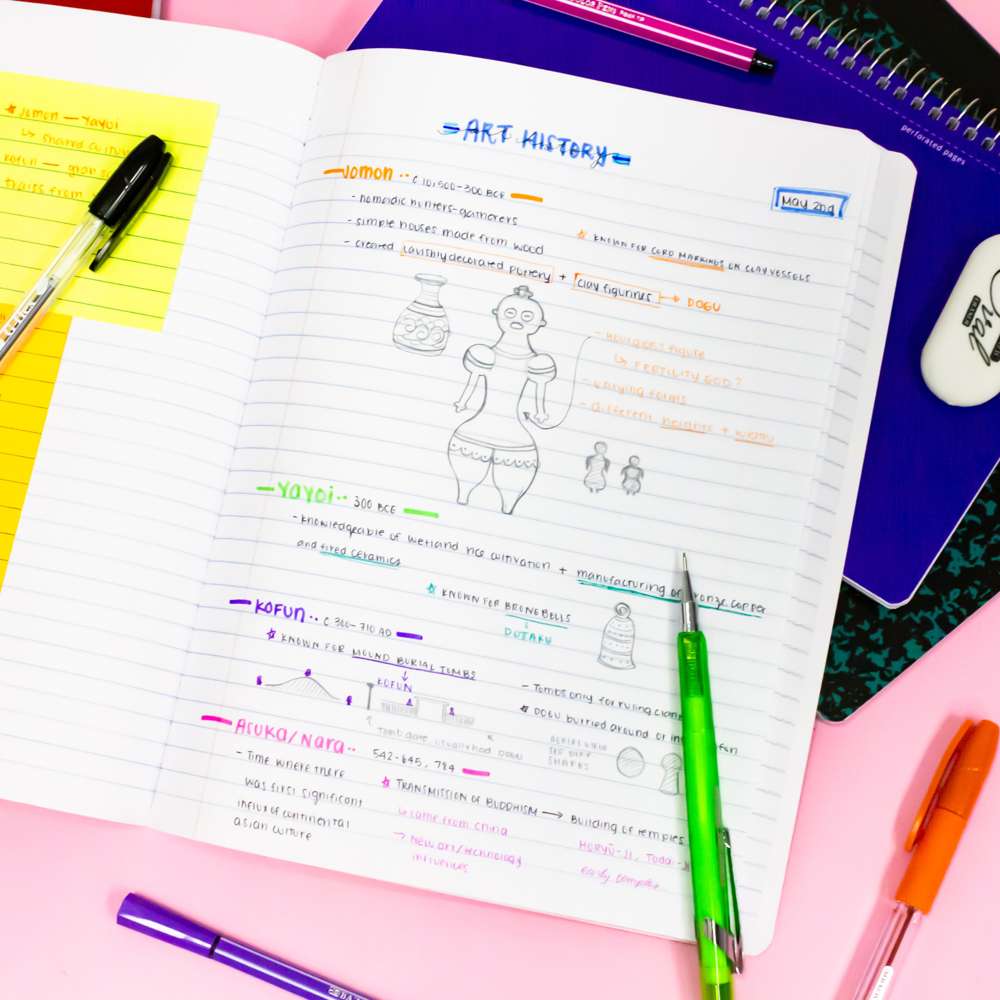 Jomon — Yayoi
↳ shared cultu
Kofun —
traits from
ART HISTORY
May 2nd
Jomon ·· c 10,500-300 BCE
- nomadic hunters-gatherers
- simple houses made from wood
- created lavishly decorated pottery + clay figurines → DOGU
☆ KNOWN FOR CORD MARKINGS ON CLAY VESSELS
- hourglass figure
↳ FERTILITY GOD?
- varying forms
- different heights +
Yayoi ·· 300 BCE
- knowledgeable of wetland rice cultivation + manufacturing bronze copper
and fired ceramics
☆ KNOWN FOR BRONE BELLS
↓
DOTAKU
KOFUN ·· c 300-710 AD
☆ KNOWN FOR MOUND BURIAL TOMBS
↓
KOFUN
- Tombs only for ruling
☆ DOGU burried around or
Tomb
SHARDS
Asuka/Nara ·· 542-645, 784
- Time where there
was first significant
influx of continental
asian culture
☆ TRANSMISSION OF BUDDHISM → Building of temples
↳ came from china
→ New art/technology
influences
HORYŪ-JI, Todai-
early
perforated pages
Oval